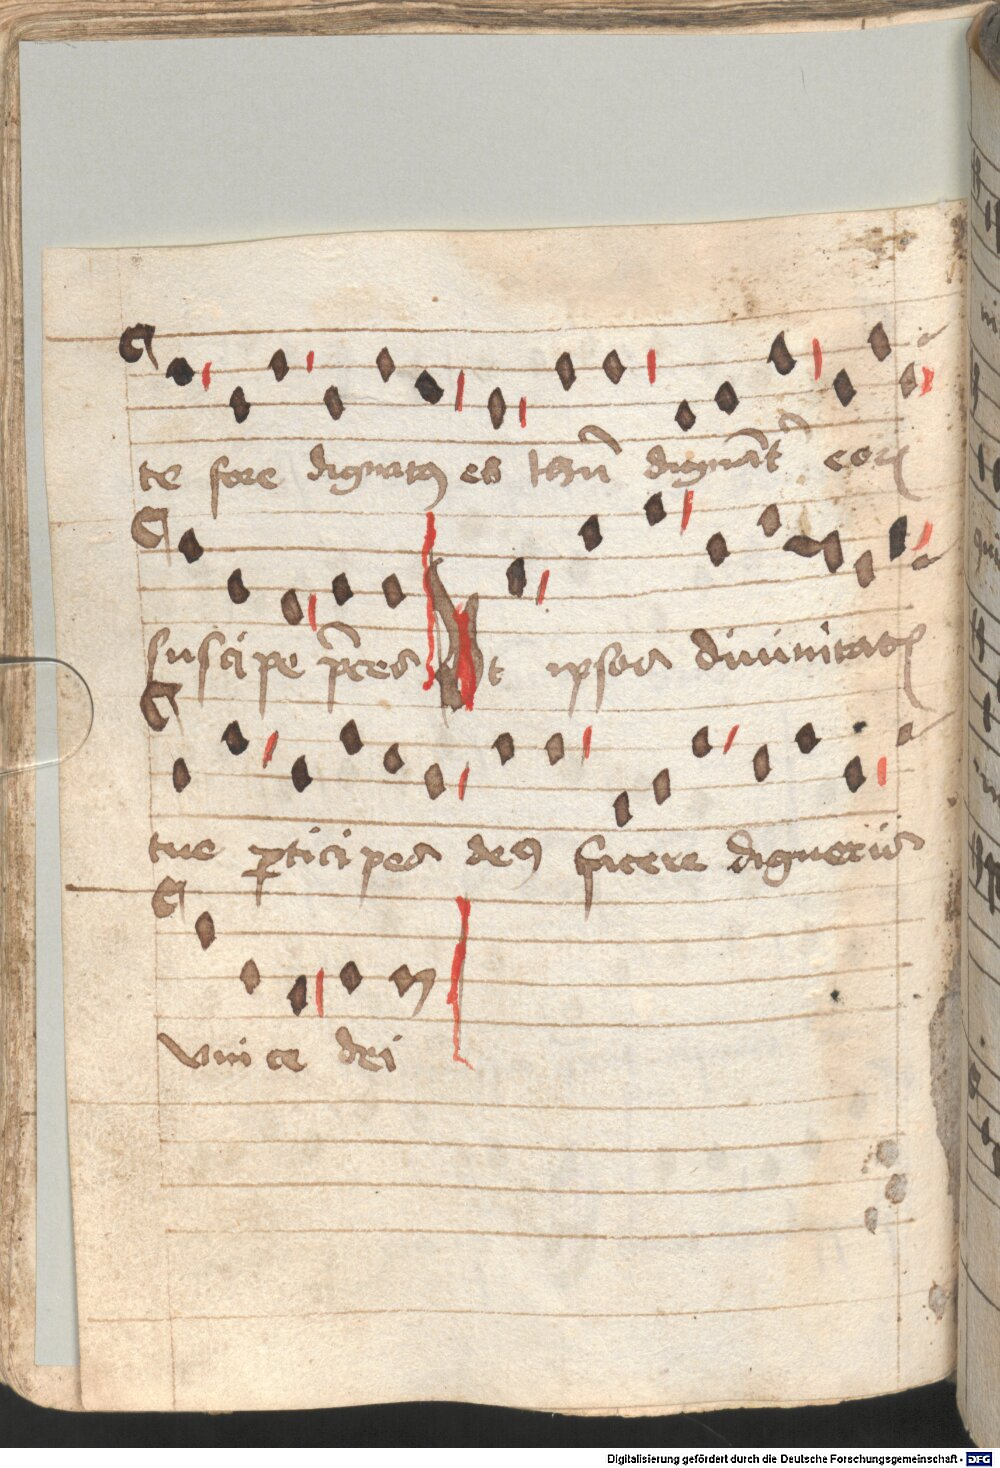 te fore dignatus es Ihū dignāter eorum
suscipe preces Vt ipsos diuinitatis
tue participes deus facere digneris
vnice dei
Digitalisierung gefördert durch die Deutsche Forschungsgemeinschaft - DFG